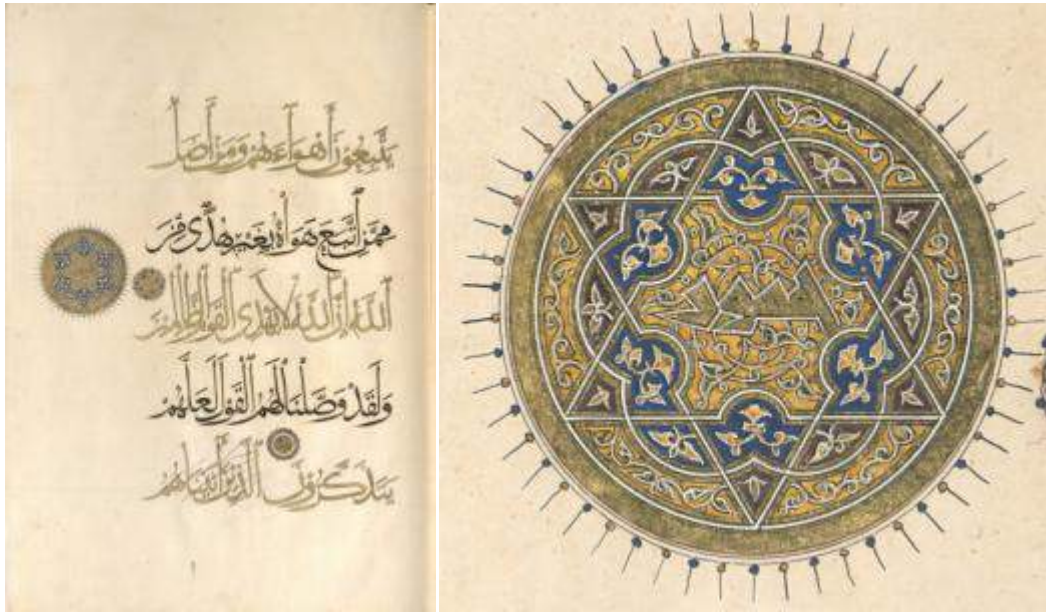 يَتَّبِعُونَ أَهْوَاءَهُمْ وَمَنْ أَضَلُّ
مِمَّنِ ٱتَّبَعَ هَوَاهُ بِغَيْرِ هُدًى مِنَ
ٱللَّهِ إِنَّ ٱللَّهَ لَا يَهْدِى ٱلْقَوْمَ ٱلظَّالِمِينَ
وَلَقَدْ وَصَّلْنَا لَهُمُ ٱلْقَوْلَ لَعَلَّهُمْ
يَتَذَكَّرُونَ ٱلَّذِينَ آتَيْنَاهُمُ